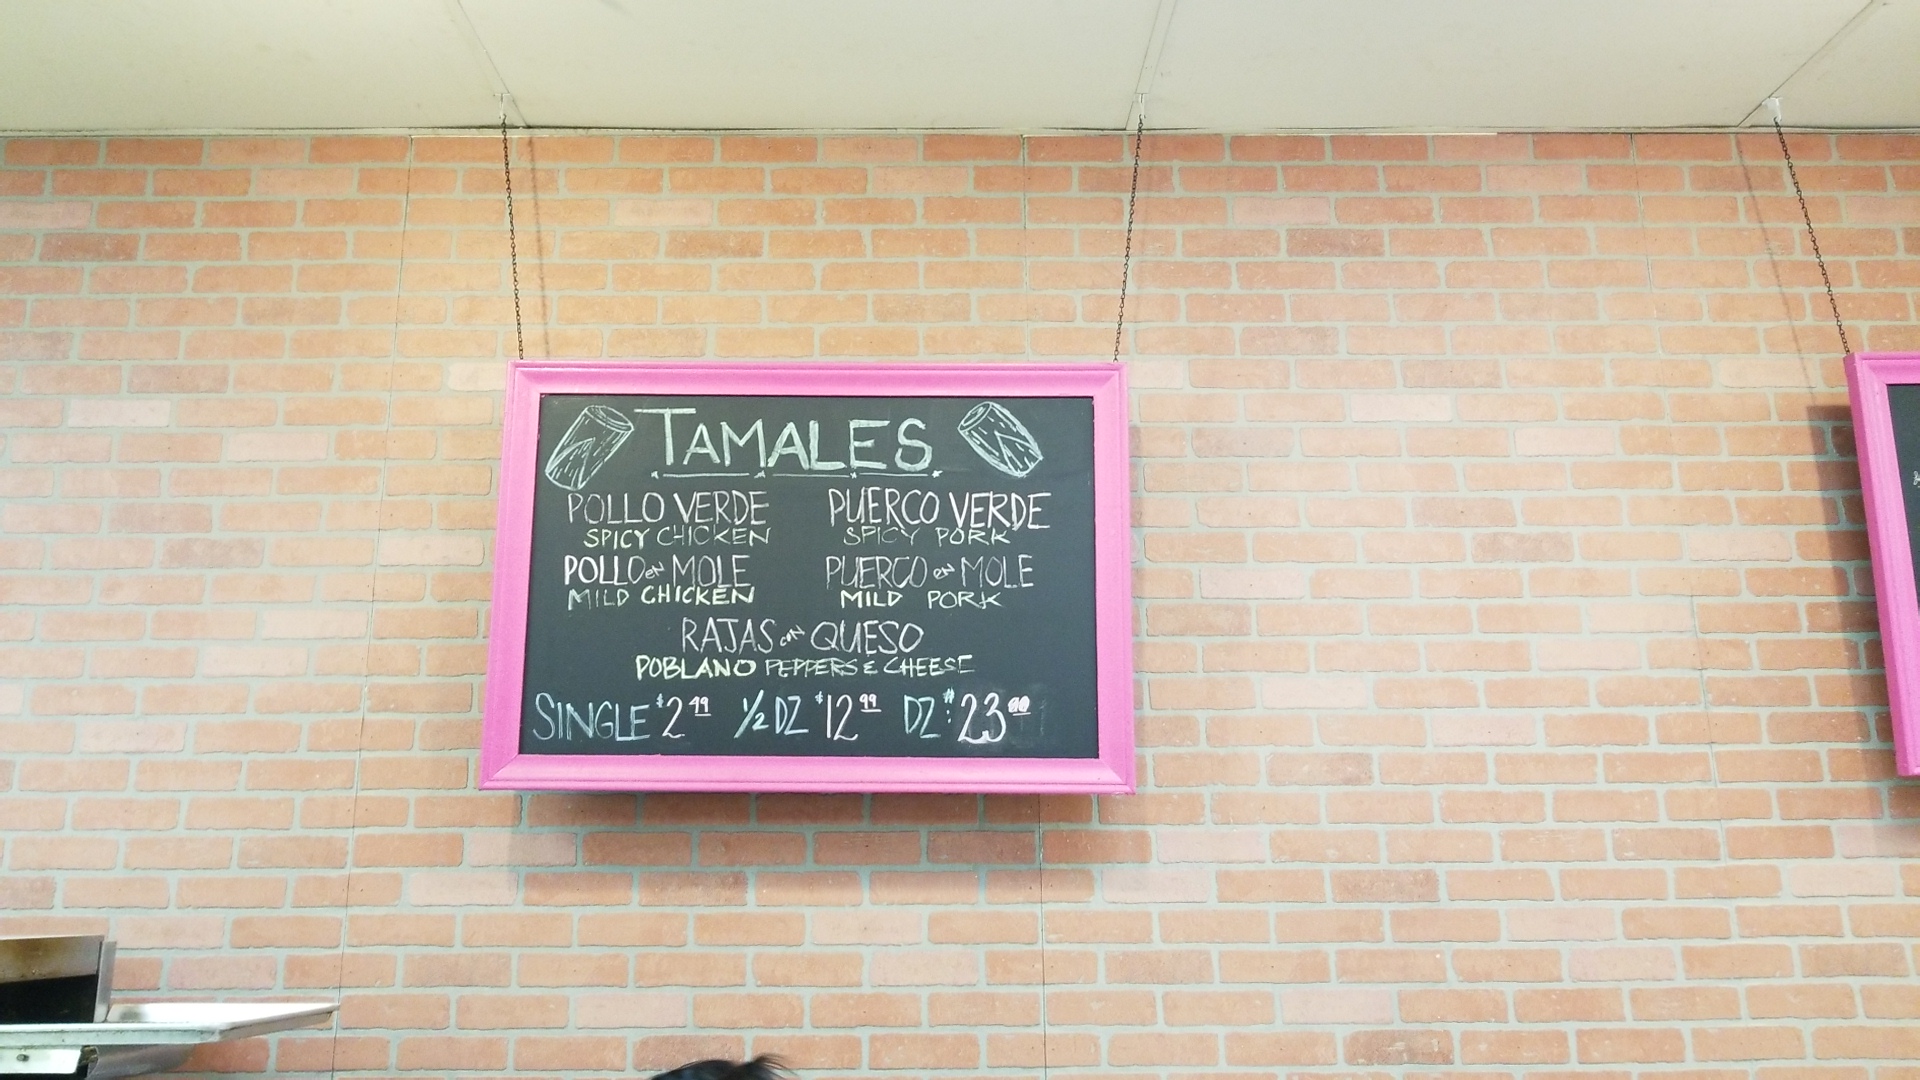 TAMALES
POLLO VERDE
SPICY CHICKEN
PUERCO VERDE
SPICY PORK
POLLO EN MOLE
MILD CHICKEN
PUERCO EN MOLE
MILD PORK
RAJAS CON QUESO
POBLANO PEPPERS & CHEESE
SINGLE $2.99 1/2 DZ $12.99 DZ: $23